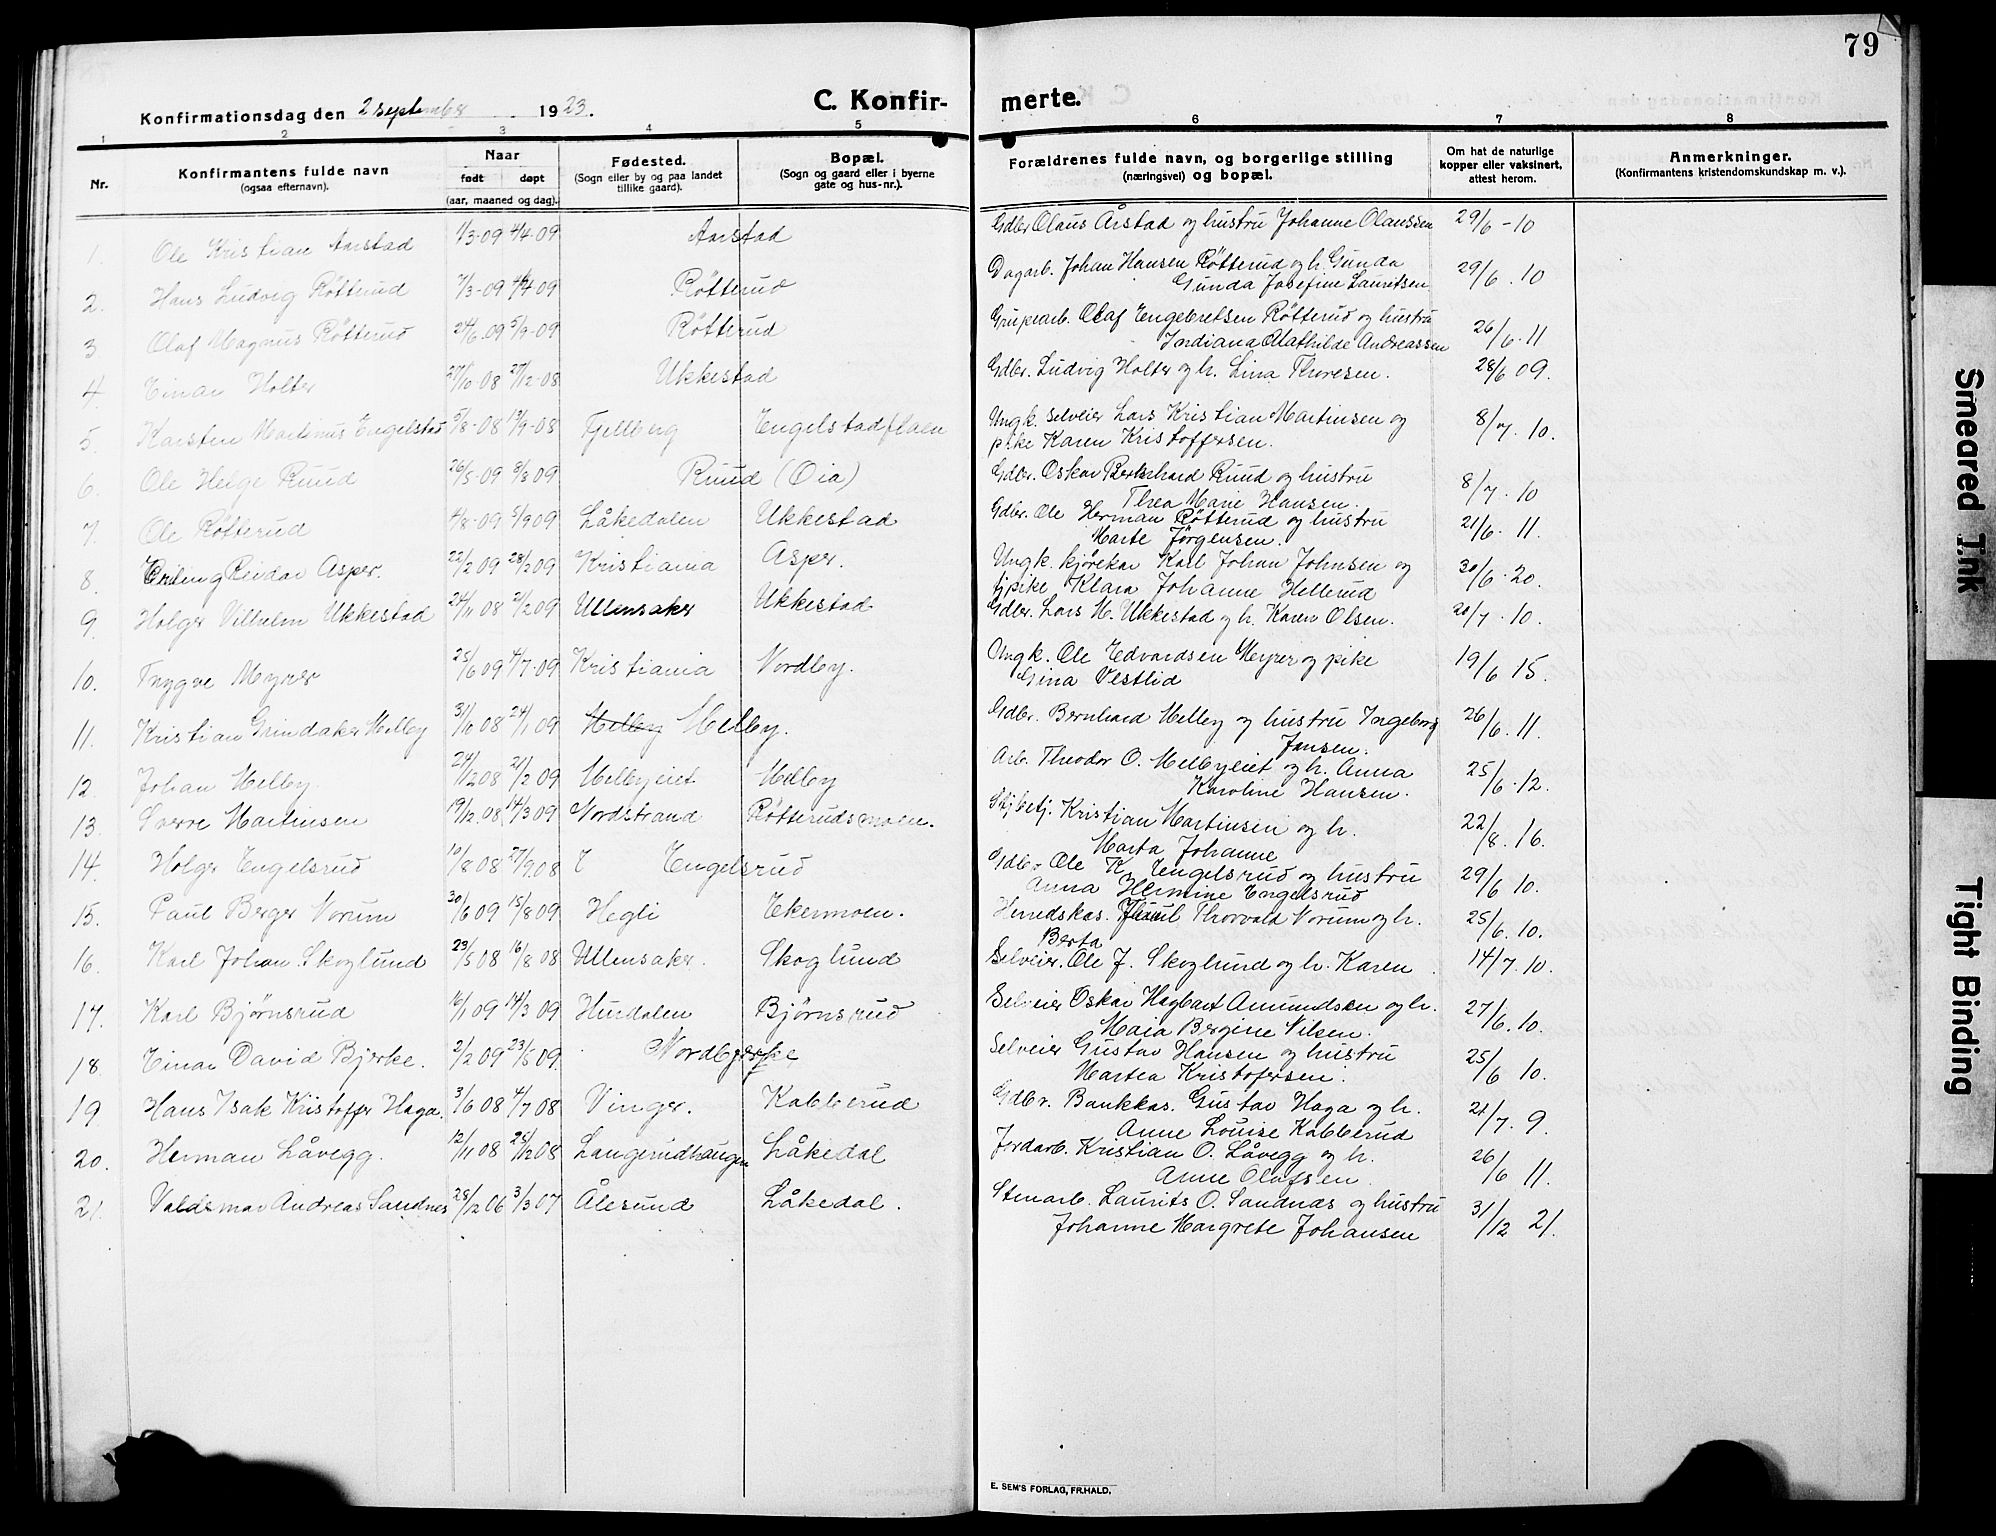 79
Konfirmationsdag den 2 september 1923.
C. Konfir-
merte.
1 2 3 4 5 6 7 8
Nr.
Konfirmantens fulde navn
(ogsaa efternavn).
Naar
født døpt
(aar, maaned og dag).
Fødested.
(Sogn eller by og paa landet
tillike gaard).
Bopæl.
(Sogn og gaard eller i byerne
gate og hus-nr.).
Forældrenes fulde navn, og borgerlige stilling
(næringsvei) og bopæl.
Om hat de naturlige
kopper eller vaksinert,
attest herom.
Anmerkninger.
(Konfirmantens kristendomskundskap m. v.).
1. Ole Kristian Aarstad 1/3-09 4/4-09 Aarstad Gdbr Olaus Årstad og hustru Johanne Olaussen 29/6-10
2. Hans Ludvig Røtterud 7/3-09 4/4 09 Røtterud Dagarb. Johan Hansen Røtterud og h. Gunda
Gunda Josefine Lauritsen 29/6. 10
3 Olaf Magnus Røtterud 24/6.09 5/9-09 Røtterud Grubearb. Olaf Engebretsen Røtterud og hustru
Indiana Mathilde Andreassen 26/6.11
4. Einar Holter 27/10-08 27/12-08 Ukkestad Gdbr. Ludvig Holter og h. Lina Thoresen. 28/6 09.
5. Karsten Martinus Engelstad 5/8-08 13/9-08 Fjellberg Engelstadflaen Ungk. selveier Lars Kristian Martinsen og
pike Karen Kristoffersen. 8/7. 10.
6. Ole Helge Ruud 26/5-09 8/8 09 Ruud (Oia) Gdbr. Oskar Bernhard Ruud og hustru
Thea Marie Hansen. 8/7. 10
7. Ole Røtterud 4/8-09 5/9 09 Låkedalen Ukkestad Gdbr. Ole Herman Røtterud og hustru
Marte Jørgensen. 21/6. 11.
8. Erling Reidar Asper. 22/2 09 28/2 09 Kristiania Asper. Ungk. kjørekar Karl Johan Johnsen og
tjpike Klara Johanne Hellerud 30/6.20.
9. Holger Vilhelm Ukkestad 24/11 08 21/2 09 Ullensaker Ukkestad Gdbr. Lars M. Ukkestad og h. Karen Olsen. 20/7. 10.
10. Trygve Myrer 25/6 09 4/7-09 Kristiania Nordby. Ungk. Ole Edvardsen Myrer og pike
Gina Vestlid 19/6 15.
11. Kristian Grindaker Melby 31/10 08 24/1 09 Melby Melby. Gdbr. Bernhard Melby og hustru Ingeborg
Jensen. 26/6. 11.
12. Johan Melby. 24/12 08 21/2 09 Melbyeiet Melby Arb. Theodor O. Melbyeiet og h. Anna
Karoline Hansen. 25/6.12.
13. Sverre Martinsen 19/12 08 14/3 09 Nordstrand Røtterudsmoen. Kristian Martinsen og h.
Marta Johanne 22/8. 16.
14. Holger Engelsrud 10/8 08 27/9 08 Engelsrud Gdbr Ole K. Engelsrud og hustru
Anna Hermine Engelsrud 29/6 10.
15. Paul Berger Vorum 30/6 09 15/8 09 Hegli Ekermoen. Herredskas. Thorvald Vorum og h.
Berta 25/6. 10.
16. Karl Johan Skoglund 23/5 08 16/8 08 Ullensaker. Skoglund Selveier. Ole J. Skoglund og h. Karen. 14/7. 10.
17. Karl Bjørnsrud 16/1 09 14/3 09 Hurdalen Bjørnsrud Selveier Oskar Hagbart Amundsen og h.
Maia Bergine Nilsen. 27/6. 10.
18. Einar David Bjerke. 2/2 09 23/5 09. Nordbjerke Selveier Gustav Hansen og hustru
Martea Kristofersen. 25/6 10.
19. Hans Isak Kristoffer Haga. 3/6 08 4/7 08 Vinger. Kabberud Gdbr. Bankkas. Gustav Haga og h.
Anne Louise Kabberud 21/7. 9.
20. Herman Låvegg. 12/11 08 25/12 08 Langerudhaugen Låkedal Jordarb. Kristian O. Låvegg og h.
Anne Olafsen. 26/6 11.
21. Valdemar Andreas Sandnes 28/12 06 3/3 07 Ålesund Låkedal. Stenarb. Laurits O. Sandnes og hustru
Johanne Margrete Johansen 31/12 21.
E. SEM'S FORLAG, FR.HALD.
Smeared Ink
Tight Binding